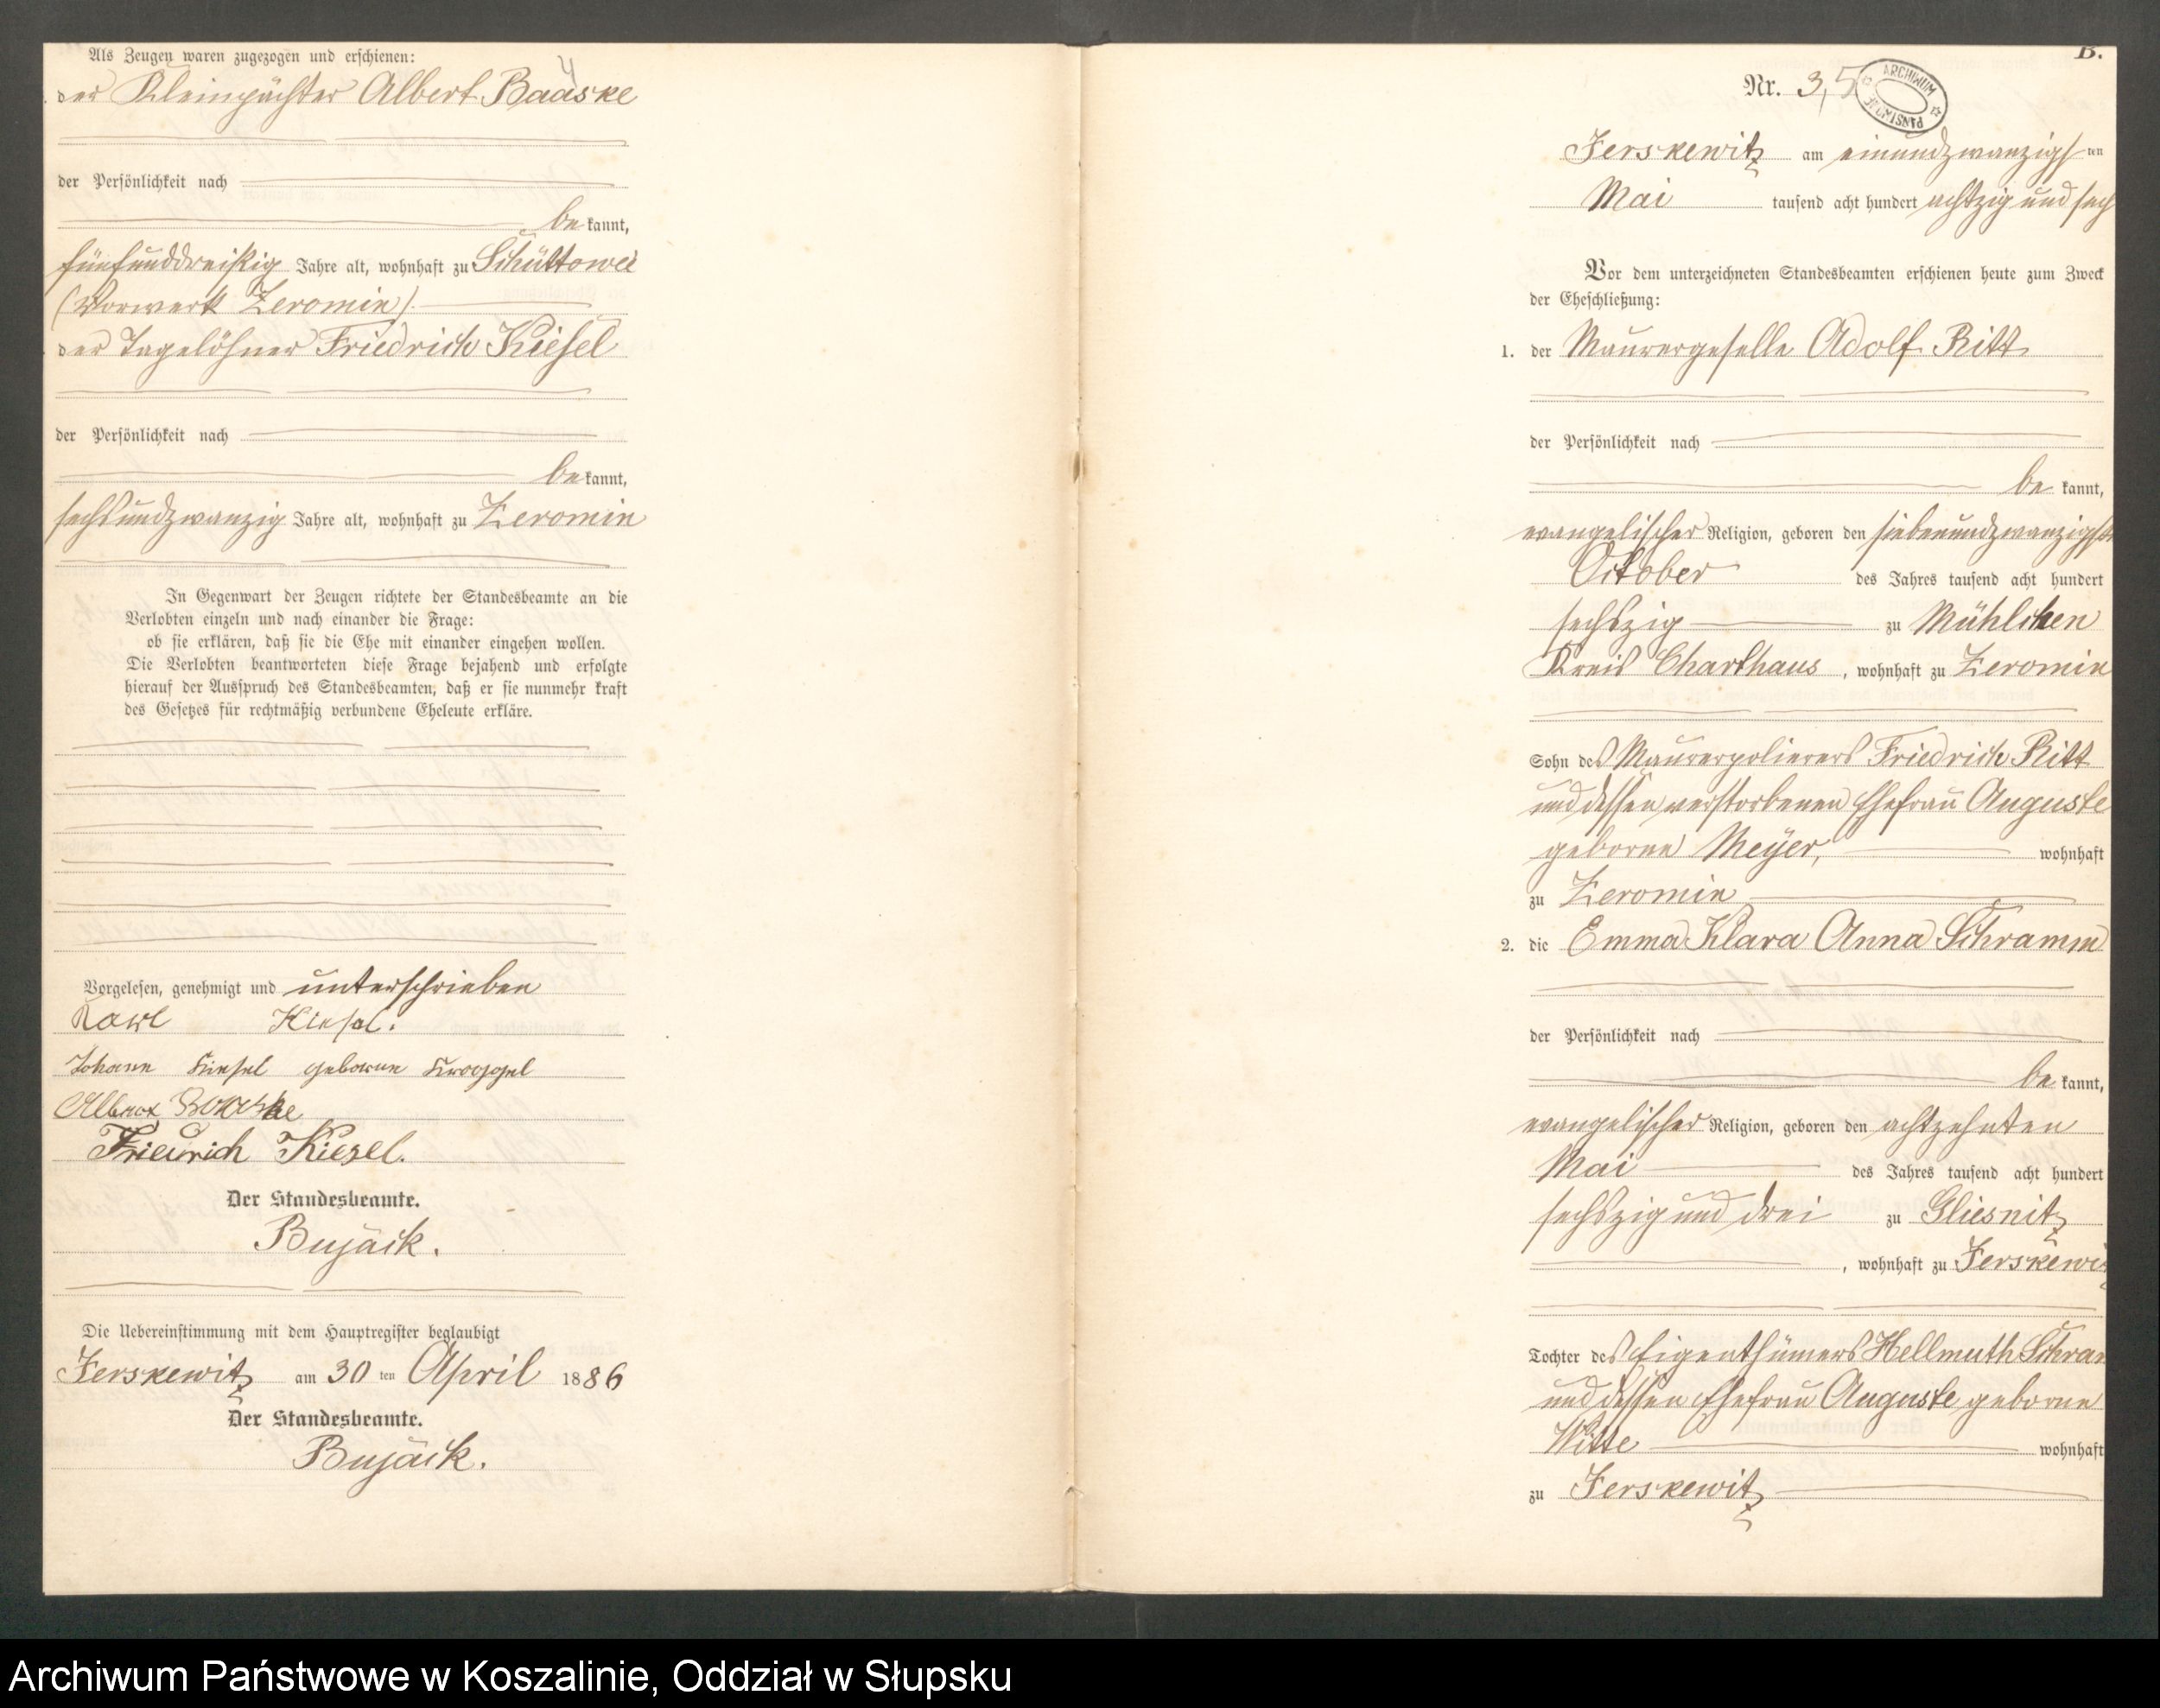 Als Zeugen waren zugezogen und erschienen:
4
der Kleinpächter Albert Baaske
der Persönlichkeit nach
bekannt,
fünfunddreißig Jahre alt, wohnhaft zu Schüttower
(Vorwerk Zeromin)
der Tagelöhner Friedrich Kiesel
der Persönlichkeit nach
bekannt,
sechsundzwanzig Jahre alt, wohnhaft zu Zeromin
In Gegenwart der Zeugen richtete der Standesbeamte an die
Verlobten einzeln und nach einander die Frage:
ob sie erklären, daß sie die Ehe mit einander eingehen wollen.
Die Verlobten beantworteten diese Frage bejahend und erfolgte
hierauf der Ausspruch des Standesbeamten, daß er sie nunmehr kraft
des Gesetzes für rechtmäßig verbundene Eheleute erkläre.
Vorgelesen, genehmigt und unterschrieben
Karl Kiesel.
Johann Kiesel geborne
Albert Baaske
Friedrich Kiesel.
Der Standesbeamte.
Bujäck.
Die Uebereinstimmung mit dem Hauptregister beglaubigt
Jerskewitz am 30 ten April 1886
Der Standesbeamte.
Bujäck.
B.
Nr. 3,5
ARCHIWUM PAŃSTWOWE
Jerskewitz am einundzwanzigsten
Mai tausend acht hundert achtzig und sech
Vor dem unterzeichneten Standesbeamten erschienen heute zum Zweck
der Eheschließung:
1. der Maurergeselle Adolf Ritt
der Persönlichkeit nach
bekannt,
evangelischer Religion, geboren den siebenundzwanzigsten
October des Jahres tausend acht hundert
sechszig zu Mühlchen
Kreis Charthaus, wohnhaft zu Zeromin
Sohn des Maurerpolierers Friedrich Ritt
und dessen verstorbenen Ehefrau Auguste
geborne Meyer, wohnhaft
zu Zeromin
2. die Emma Klara Anna Schramm
der Persönlichkeit nach
bekannt,
evangelischer Religion, geboren den achtzehnten
Mai des Jahres tausend acht hundert
sechszig und drei zu Gliesnitz
, wohnhaft zu Jerskewi
Tochter des Eigenthümers Hellmuth Schram
und dessen Ehefrau Auguste geborne
Witte wohnhaft
zu Jerskewitz
Archiwum Państwowe w Koszalinie, Oddział w Słupsku